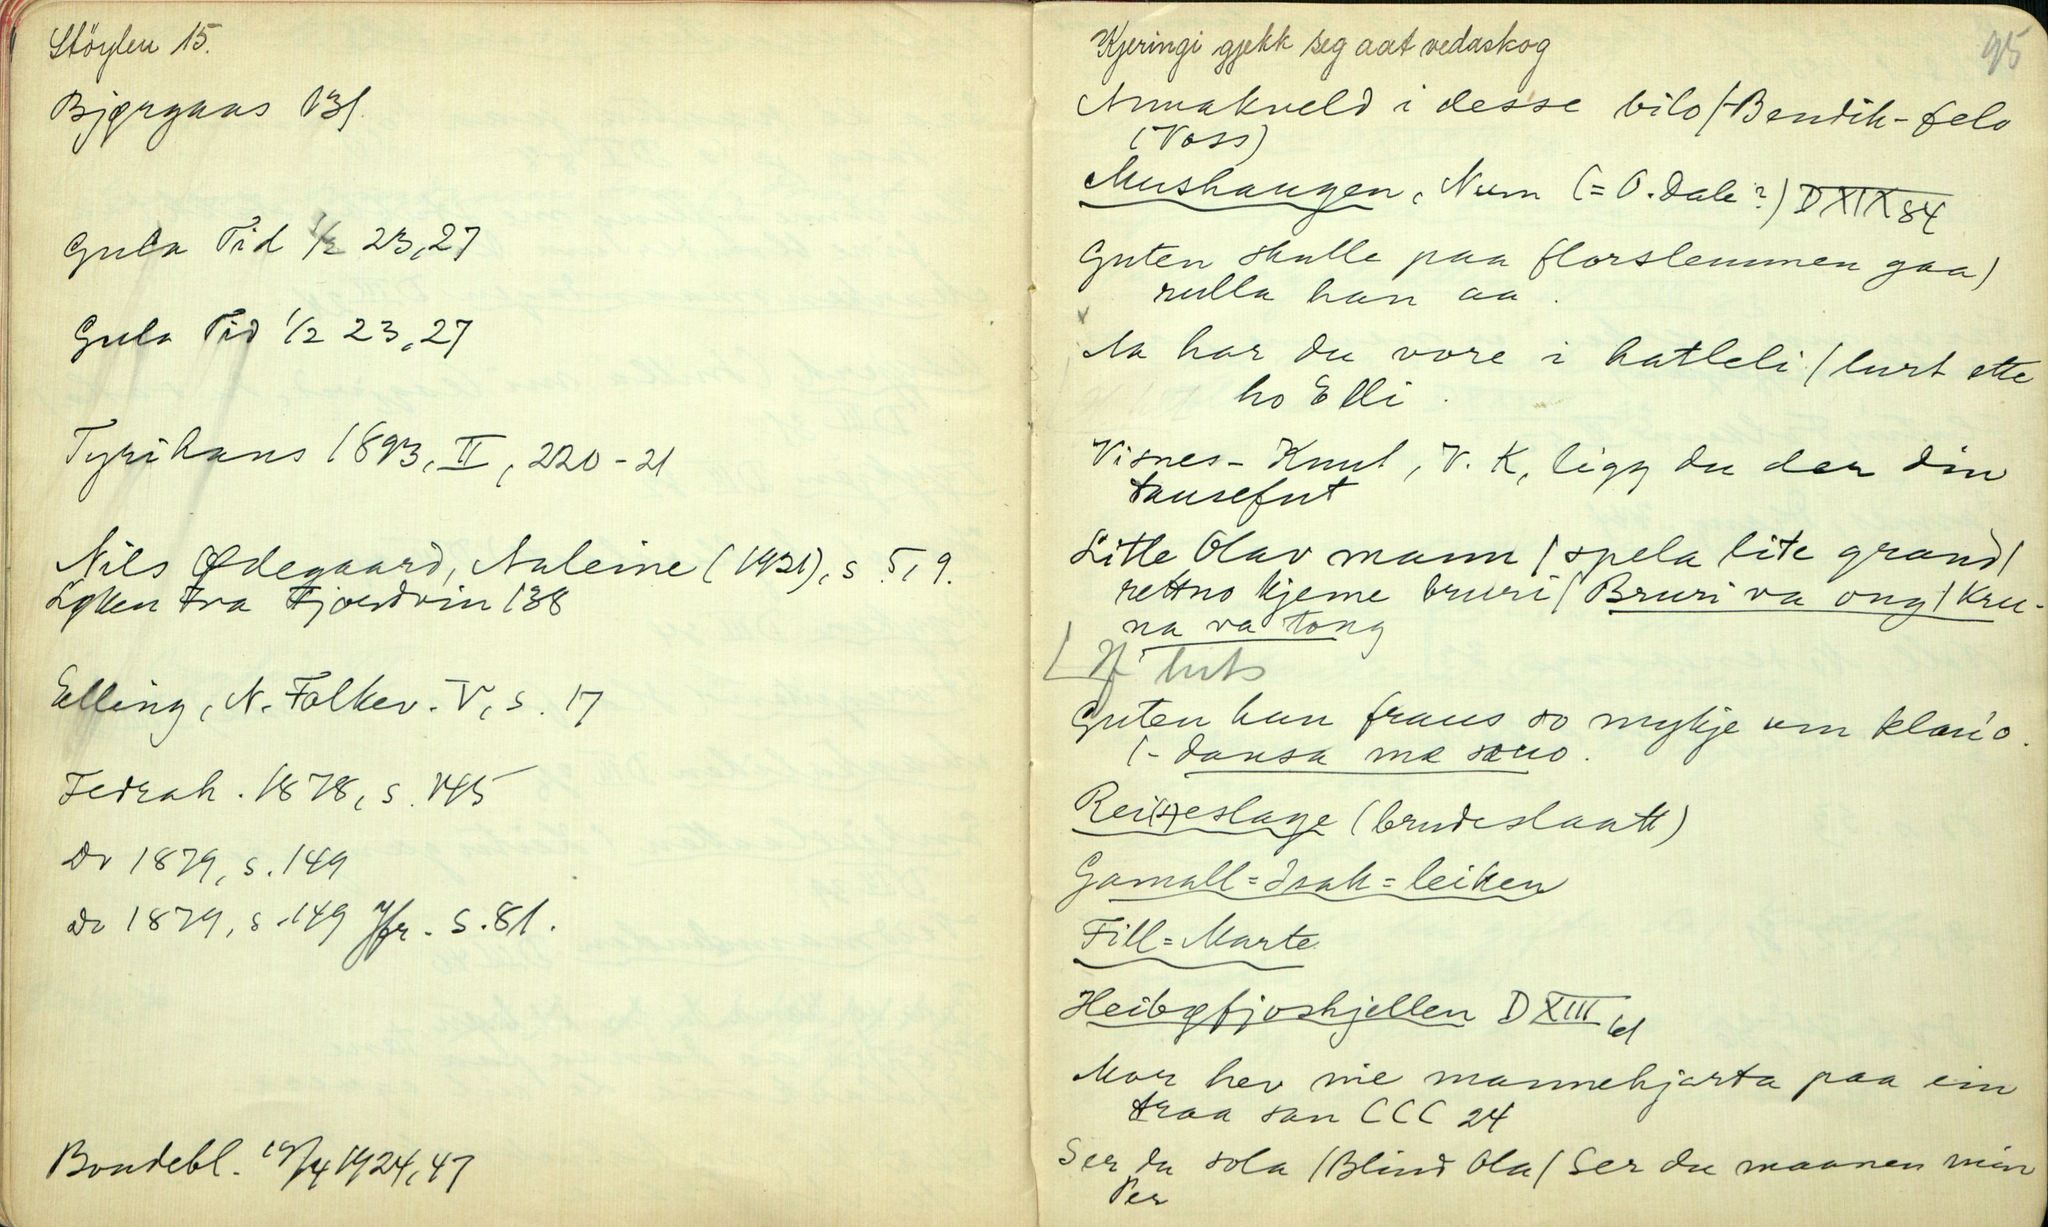 Støylen 15.
Bjørgaas 131.
Gula Tid 1/2 23, 27
Gula Tid 1/2 23, 27
Tyrihans 1893, II, 220-21
Nils Ødegaard, Auleine (1921), s. 5, 9.
Løken Fra Fjordvin 138
Elling, N. Folkev. V, s. 17
Fedrah. 1878, s. 145
Do 1879, s. 149
Do 1879, s. 149 Jfr. s. 81.
Bondebl. 19/4 1924, 47
95
Kjeringi gjekk seg aat vedaskog
Annakveld i desse bilo/-Bendik-felo
(Voss)
Mushaugen, Num (= O. Dale?) D XIX 84
Guten skulle paa florslemmen gaa/
rulla han aa.
Aa har du vore i hatleli / lurt ette
ho Elli.
Visnes-Knut, V. K, ligg du der din
tausefut
Litle Olav mann / spela lite grand /
rettno kjeme bruri / Bruri va ong / kru-
na va tong
Guten han fraus so mykje um klaio.
/- dansa mæ sono.
Rei(s)eslage (brudeslaatt)
Gamall-Isak-leiken
Fill-Marte
Heibøfjoshjellen D XIII 61
Mor hev nie mannehjarta paa ein
traa san CCC 24
Ser du sola / Blind Ola / Ser du maanen min
Per